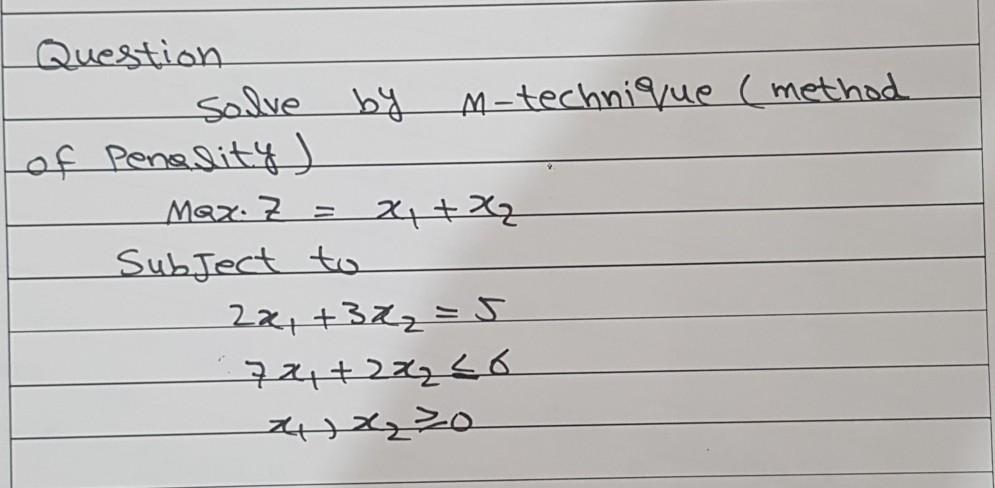 Question
Solve by M-technique (method
of Penality)
Max. Z = x₁ + x₂
Subject to
2x₁ + 3x₂ = 5
7x₁ + 2x₂ ≤ 6
x₁, x₂ ≥ 0